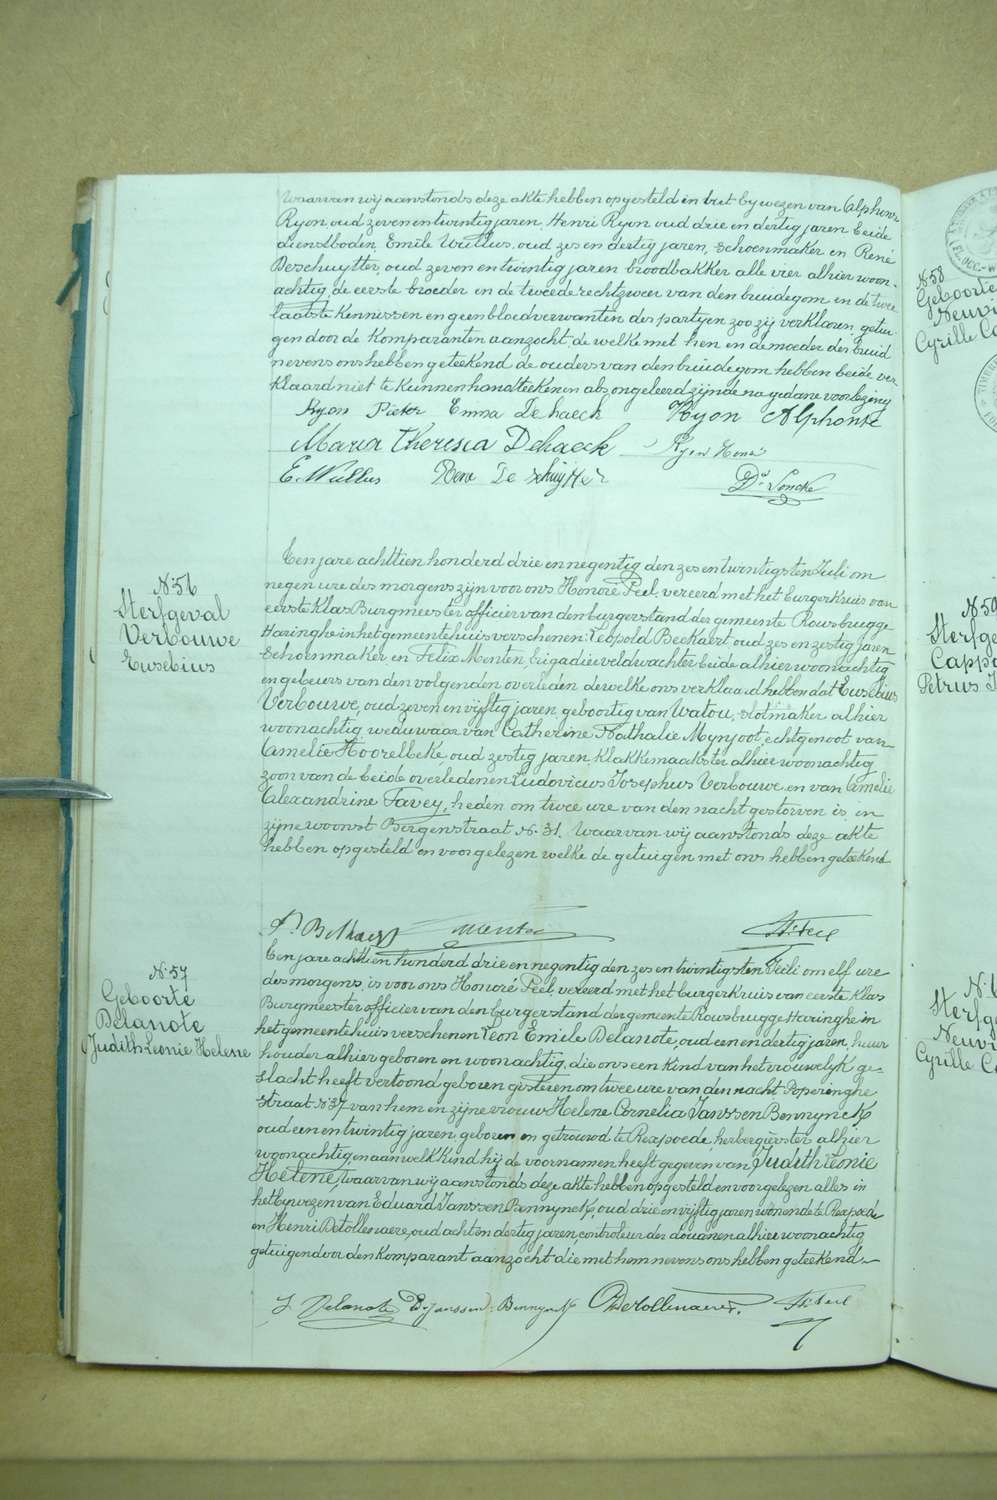 Waarvan wij aanstonds deze akte hebben opgesteld in het bywezen van Alphons
Ryon, oud zeven en twintig jaren, Henri Ryon oud drie en dertig jaren beide
dienstboden, Emile Wullus, oud zes en dertig jaren, schoenmaker en René
Deschuytter, oud zeven en twintig jaren broodbakker alle vier alhier woon-
achtig, de eerste broeder en de tweede rechtzweer van den bruidegom en de twee
laatste kennissen en geen bloedverwanten des partyen zoo zij verklaren, getui-
gen door de Komparanten aanzocht de welke met hen en de moeder der bruid
nevens ons hebben geteekend de ouders van den bruidegom hebben beide ver-
klaard niet te kunnen handteekenen als ongeleerd zijnde na gedane voorlezing
Ryon Pieter Emma Dehaeck Ryon Alphonse
Maria Theresia Dehaeck Ryon Henri
E. Wullus Rene De Schuytter Dr Loncke
N: 56
Sterfgeval
Verbouwe
Eusebius
Een jare achttien honderd drie en negentig den zes en twintigsten Juli om
negen ure des morgens zijn voor ons Honoré Peel, vereerd met het burgerkruis van
eerste klas Burgmeester officier van den burgerstand der gemeente Rousbrugge
Haringhe in het gemeentehuis verschenen: Leopold Beekaert, oud zes en zestig jaren
Schoenmaker, en Felix Menten, brigadier veldwachter beide alhier woonachtig
en gebeurs van den volgenden overleden, dewelke ons verklaard hebben dat Eusebius
Verbouwe, oud zeven en vyftig jaren, geboortig van Watou, slotmaker alhier
woonachtig, weduwaar van Catherine Nathalie Mynjoot, echtgenoot van
Amelie Hoorelbeke, oud zestig jaren, klakkemaakster alhier woonachtig
zoon van de beide overledenen Ludovicus Josephus Verbouwe en van Amelie
Alexandrine Favey, heden om twee ure van den nacht gestorven is in
zijne woonst Bergenstraat N: 31. Waarvan wij aanstonds deze akte
hebben opgesteld en voorgelezen welke de getuigen met ons hebben geteekend
Menten Hr. Peel
N: 57
Geboorte
Delanote
Judith Leonie Helene
Een jare achttien honderd drie en negentig den zes en twintigsten Juli om elf ure
des morgens, is voor ons Honoré Peel, vereerd met het burgerkruis van eerste klas
Burgmeester officier van den burgerstand der gemeente Rousbrugge Haringhe in
het gemeentehuis verschenen Leon Emile Delanote, oud een en dertig jaren, huur
houder alhier geboren en woonachtig, die ons een kind van het vrouwelyk ge-
slacht heeft vertoond geboren gisteren om twee ure van den nacht Poperinghe
straat N: 37 van hem en zijne vrouw Helene Cornelia Janssen Bennynck,
oud een en twintig jaren, geboren en getrouwd te Rexpoede, herbergierster alhier
woonachtig, en aan welk kind hij de voornamen heeft gegeven van Judith Leonie
Helene, waarvan wij aanstonds deze akte hebben opgesteld en voorgelezen alles in
het bywezen van Eduard Janssen Bennynck, oud drie en vyftig jaren wonende te Rexpoede
en Henri Detollenaere, oud acht en dertig jaren, controleur der douanen alhier woonachtig
getuigen door den Komparant aanzocht die met hem nevens ons hebben geteekend.
L Delanote E. Janssen Bennynck H Detollenaere Hr. Peel
N: 58
Geboorte
Cyrille
Cyrille